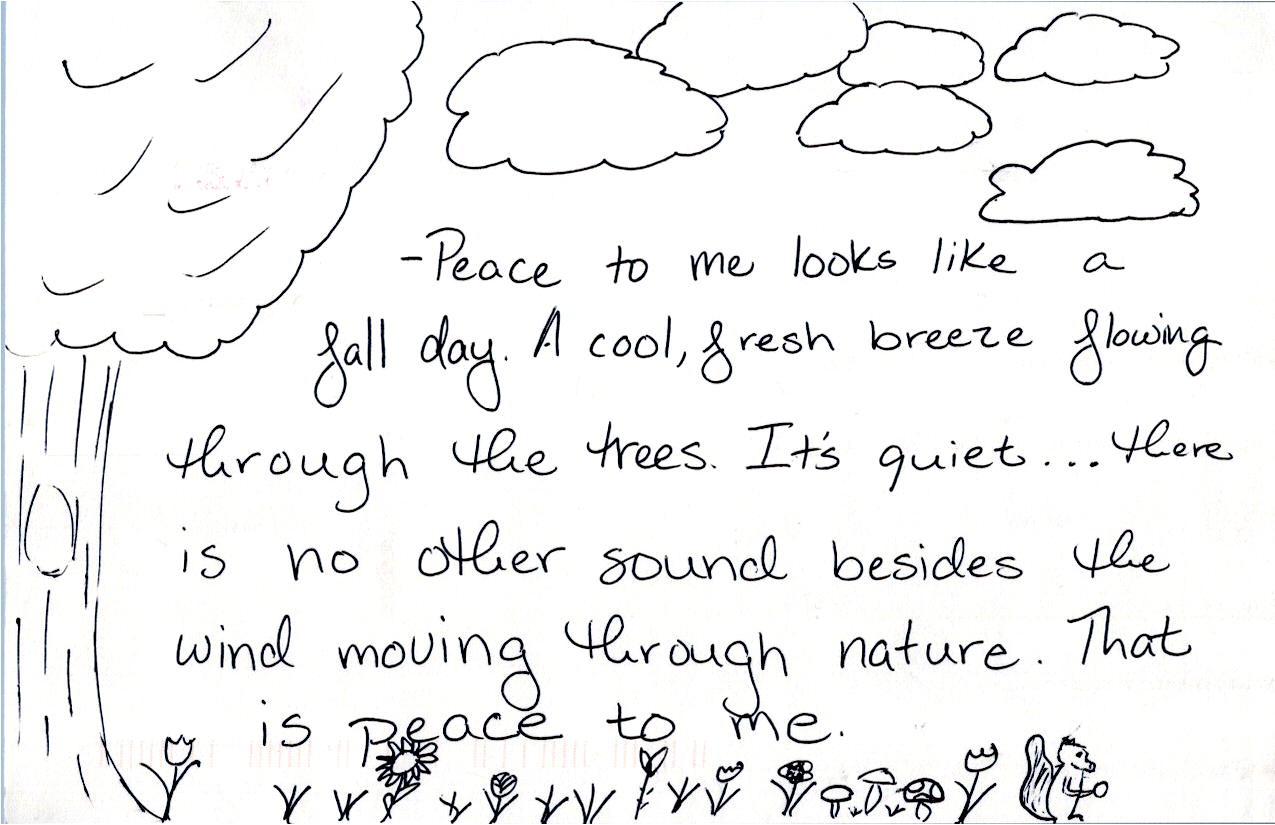 -Peace to me looks like a
fall day. A cool, fresh breeze flowing
through the trees. It's quiet... there
is no other sound besides the
wind moving through nature. That
is peace to me.